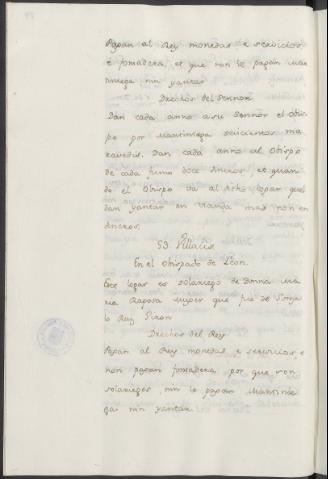 Pagan al Rey monedas e servicios,
e fonsadera, et que non le pagan mar
tiniega nin yantar
Derechos del Sennor
Dan cada anno a su Sennor el Obis
po por Martiniega seiscientos ma
ravedis. Dan cada anno al Obispo
de cada fumo doce dineros, et quan
do el Obispo va al dicho logar quel
dan yantar en vianda mas non en
dineros.
53. Villacis
En el Obispado de Leon.
Este logar es solariego de Donna Ma
ria Raposa muger que fue de Gonza
lo Ruy Giron
Derechos del Rey
Pagan al Rey monedas, e servicios, e
non pagan fonsadera, por que son
solariegos, nin le pagan Martinie
ga, nin yantar